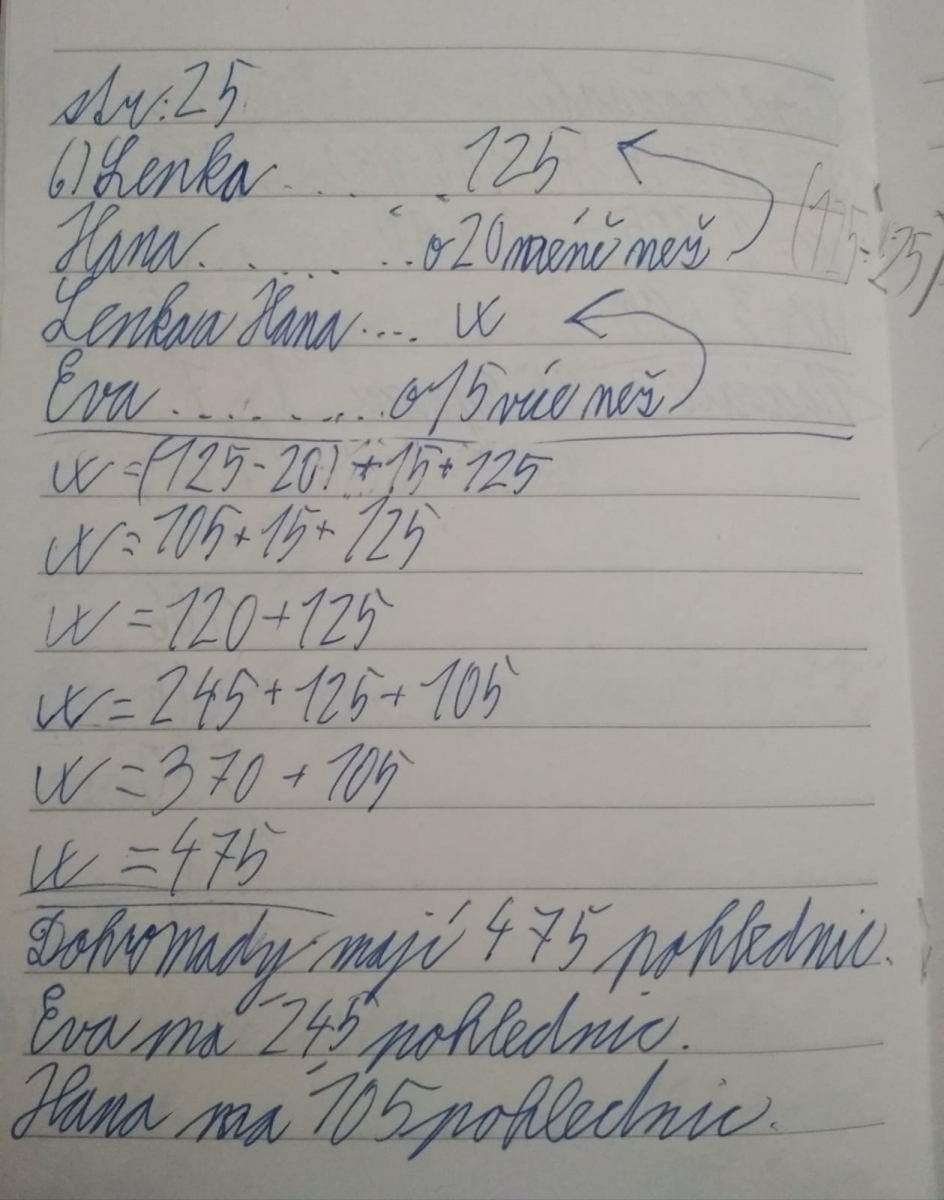 str. 25
6) Lenka . . . . . . 125
Hana . . . . . . . o 20 méně než
Lenka a Hana ... x
Eva . . . . . . . . o 15 více než
x = (125 - 20) + 15 + 125
x = 105 + 15 + 125
x = 120 + 125
x = 245 + 125 + 105
x = 370 + 105
x = 475
Dohromady mají 475 pohlednic.
Eva má 245 pohlednic.
Hana ma 105 pohlednic.